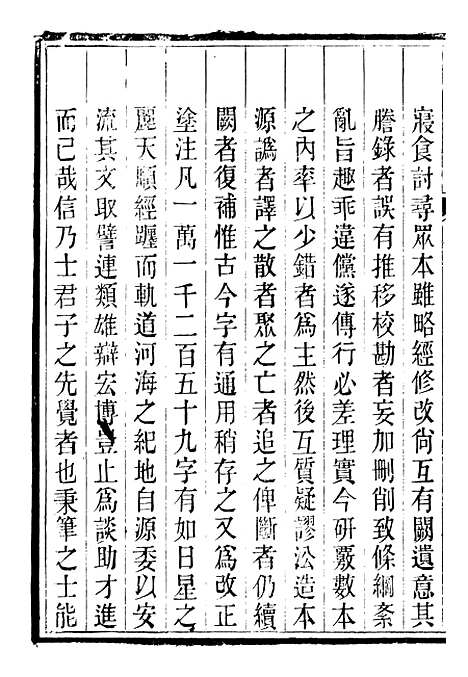 寢食討尋眾本雖略經修改尙互有闕遺意其
謄錄者誤有推移校勘者妄加刪削致條綱紊
亂旨趣乖違儻遂傳行必差理實今研覈數本
之內率以少錯者爲主然後互質疑謬㳂造本
源譌者譯之散者聚之亡者追之俾斷者仍續
闕者復補惟古今字有通用稍存之又爲改正
塗注凡一萬一千二百五十九字有如日星之
麗天順經躔而軌道河海之紀地自源委以安
流其文取譬連類雄辯宏博豈止爲談助才進
而已哉信乃士君子之先覺者也秉筆之士能